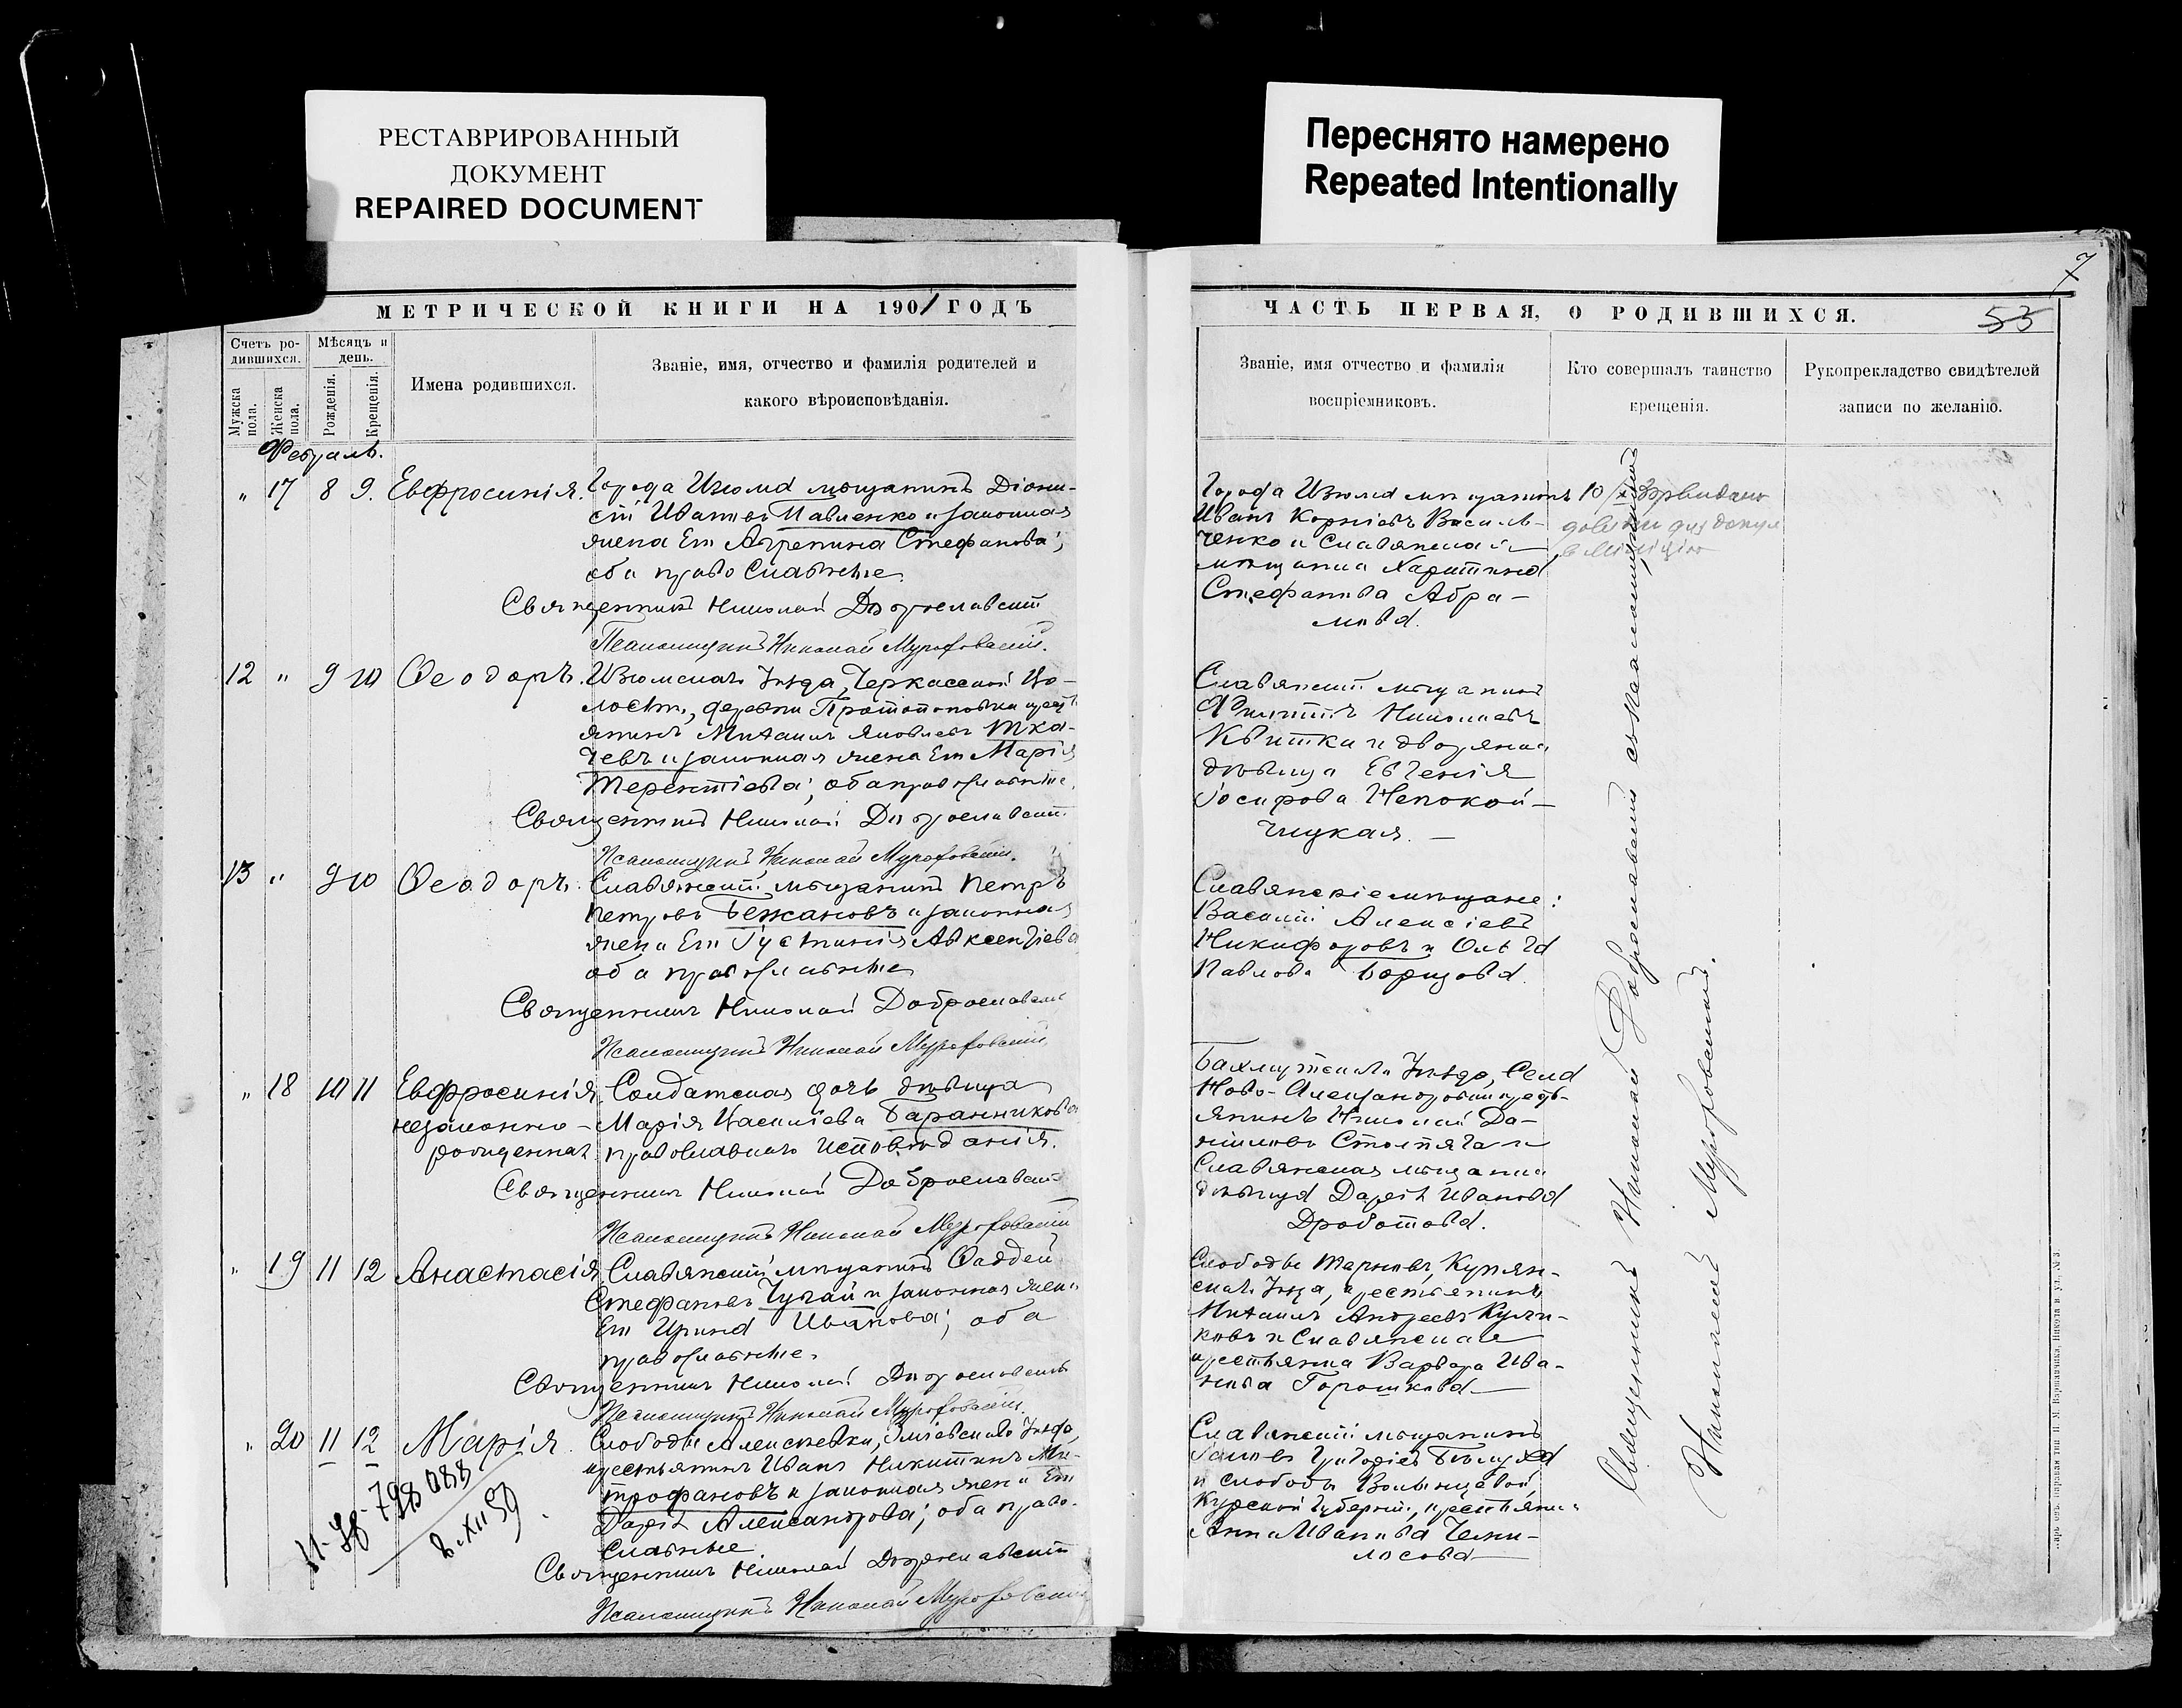 РЕСТАВРИРОВАННЫЙ
ДОКУМЕНТ
REPAIRED DOCUMENT
Переснято намерено
Repeated Intentionally
МЕТРИЧЕСКОЙ КНИГИ НА 1901 ГОДЪ
Счетъ ро-
дившихся.
Мѣсяцъ и
день.
Мужска
пола.
Женска
пола.
Рожденія.
Крещенія.
Имена родившихся.
Званіе, имя, отчество и фамилія родителей и
какого вѣроисповѣданія.
Февраль.
" 17 8 9. Евфросинія.
Города Изюма мѣщанинъ Діони-
сій Ивановъ Павленко и законная
жена его Агрепина Стефанова;
оба православные.
Священникъ Николай Доброславскій
Псаломщикъ Николай Мурофовскій.
12 " 9 10 Ѳеодоръ.
Изюмскаго Уѣзда, Черкасской Во-
лости, деревни Протопоповки крест-
янинъ Михаилъ Яковлевъ Тка-
чевъ и законная жена его Марія
Терентіева; оба православные.
Священникъ Николай Доброславскій
Псаломщикъ Николай Мурофовскій.
13 " 9 10 Ѳеодоръ.
Славянскій мѣщанинъ Петръ
Петровъ Бежановъ и законная
жена его Іустинія Авксентіева
оба православные
Священникъ Николай Доброславскій
Псаломщикъ Николай Мурофовскій
" 18 10 11 Евфросинія
незаконно-
рожденная
Солдатская дочь дѣвица
Марія Василіева Баранникова
православнаго исповѣданія.
Священникъ Николай Доброславскій
Псаломщикъ Николай Мурофовскій
" 19 11 12 Анастасія
Славянскій мѣщанинъ Ѳаддей
Стефановъ Чугай и законная жена
его Ирина Иванова; оба
православные.
Священникъ Николай Доброславскій
Псаломщикъ Николай Мурофовскій.
" 20 11 12 Марія.
Слободы Алексѣевки, Зміевскаго Уѣзда,
крестьянинъ Иванъ Никитинъ Ми-
трофановъ и законная жена его
Дарія Александрова; оба право-
славные
Священникъ Николай Доброславскій
Псаломщикъ Николай Мурофовскій
2.XII 59
ЧАСТЬ ПЕРВАЯ, О РОДИВШИХСЯ.
7
53
Званіе, имя отчество и фамилія
воспріемниковъ.
Кто совершалъ таинство
крещенія.
Рукоприкладство свидѣтелей
записи по желанію.
Города Изюма мѣщанинъ
Иванъ Корніевъ Василь-
ченко и Славянская
мѣщанка Харитина
Стефанова Абра-
мова.
Славянскій мѣщанинъ
Филиппъ Николаевъ
Квитка и дворянка
дѣвица Евгенія
Іосифова Непокой-
чицкая.
Славянскіе мѣщане:
Василій Алексіевъ
Никифоровъ и Ольга
Павлова Борцова.
Бахмутскаго Уѣзда, Села
Ново-Александровки крест-
янинъ Николай Да-
ниловъ и
Славянская мѣщанка
дѣвица Дарія Иванова
Дроботова.
Слободы Терновъ, Купян-
скаго Уѣзда, крестьянинъ
Михаилъ Андреевъ Кули-
ковъ и Славянская
крестьянка Варвара Ива-
нова Горошкова
Славянскій мѣщанинъ
Іаковъ Григоріевъ
и слободы
Курской Губерніи, крестьянка
Анна Иванова Чемо-
лосова
Священникъ Николай Доброславскій съ псаломщикомъ
Николаемъ Мурофовскимъ.